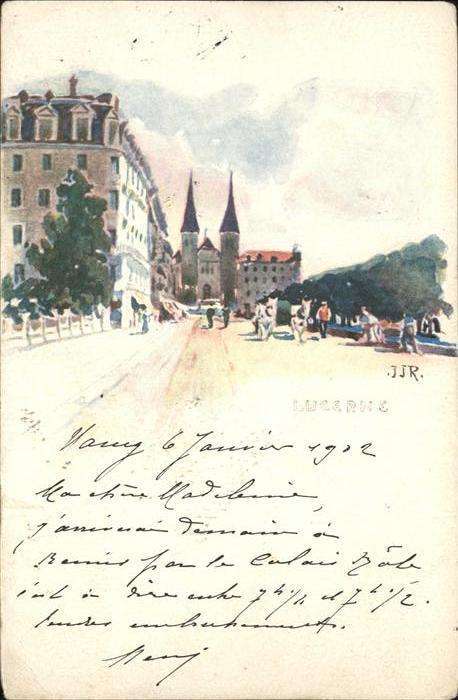 JJR.
LUCERNE
Nancy 6 Janvier 1902
Ma chère Madeleine,
j'arriverai demain à
par le Calais Bâle
c'est à dire entre 7h 1/4 et 7h 1/2.
Tendres embrassements.